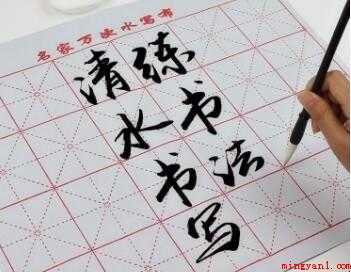 名家万次水写布
练书法
清水书写
mingyan1.com